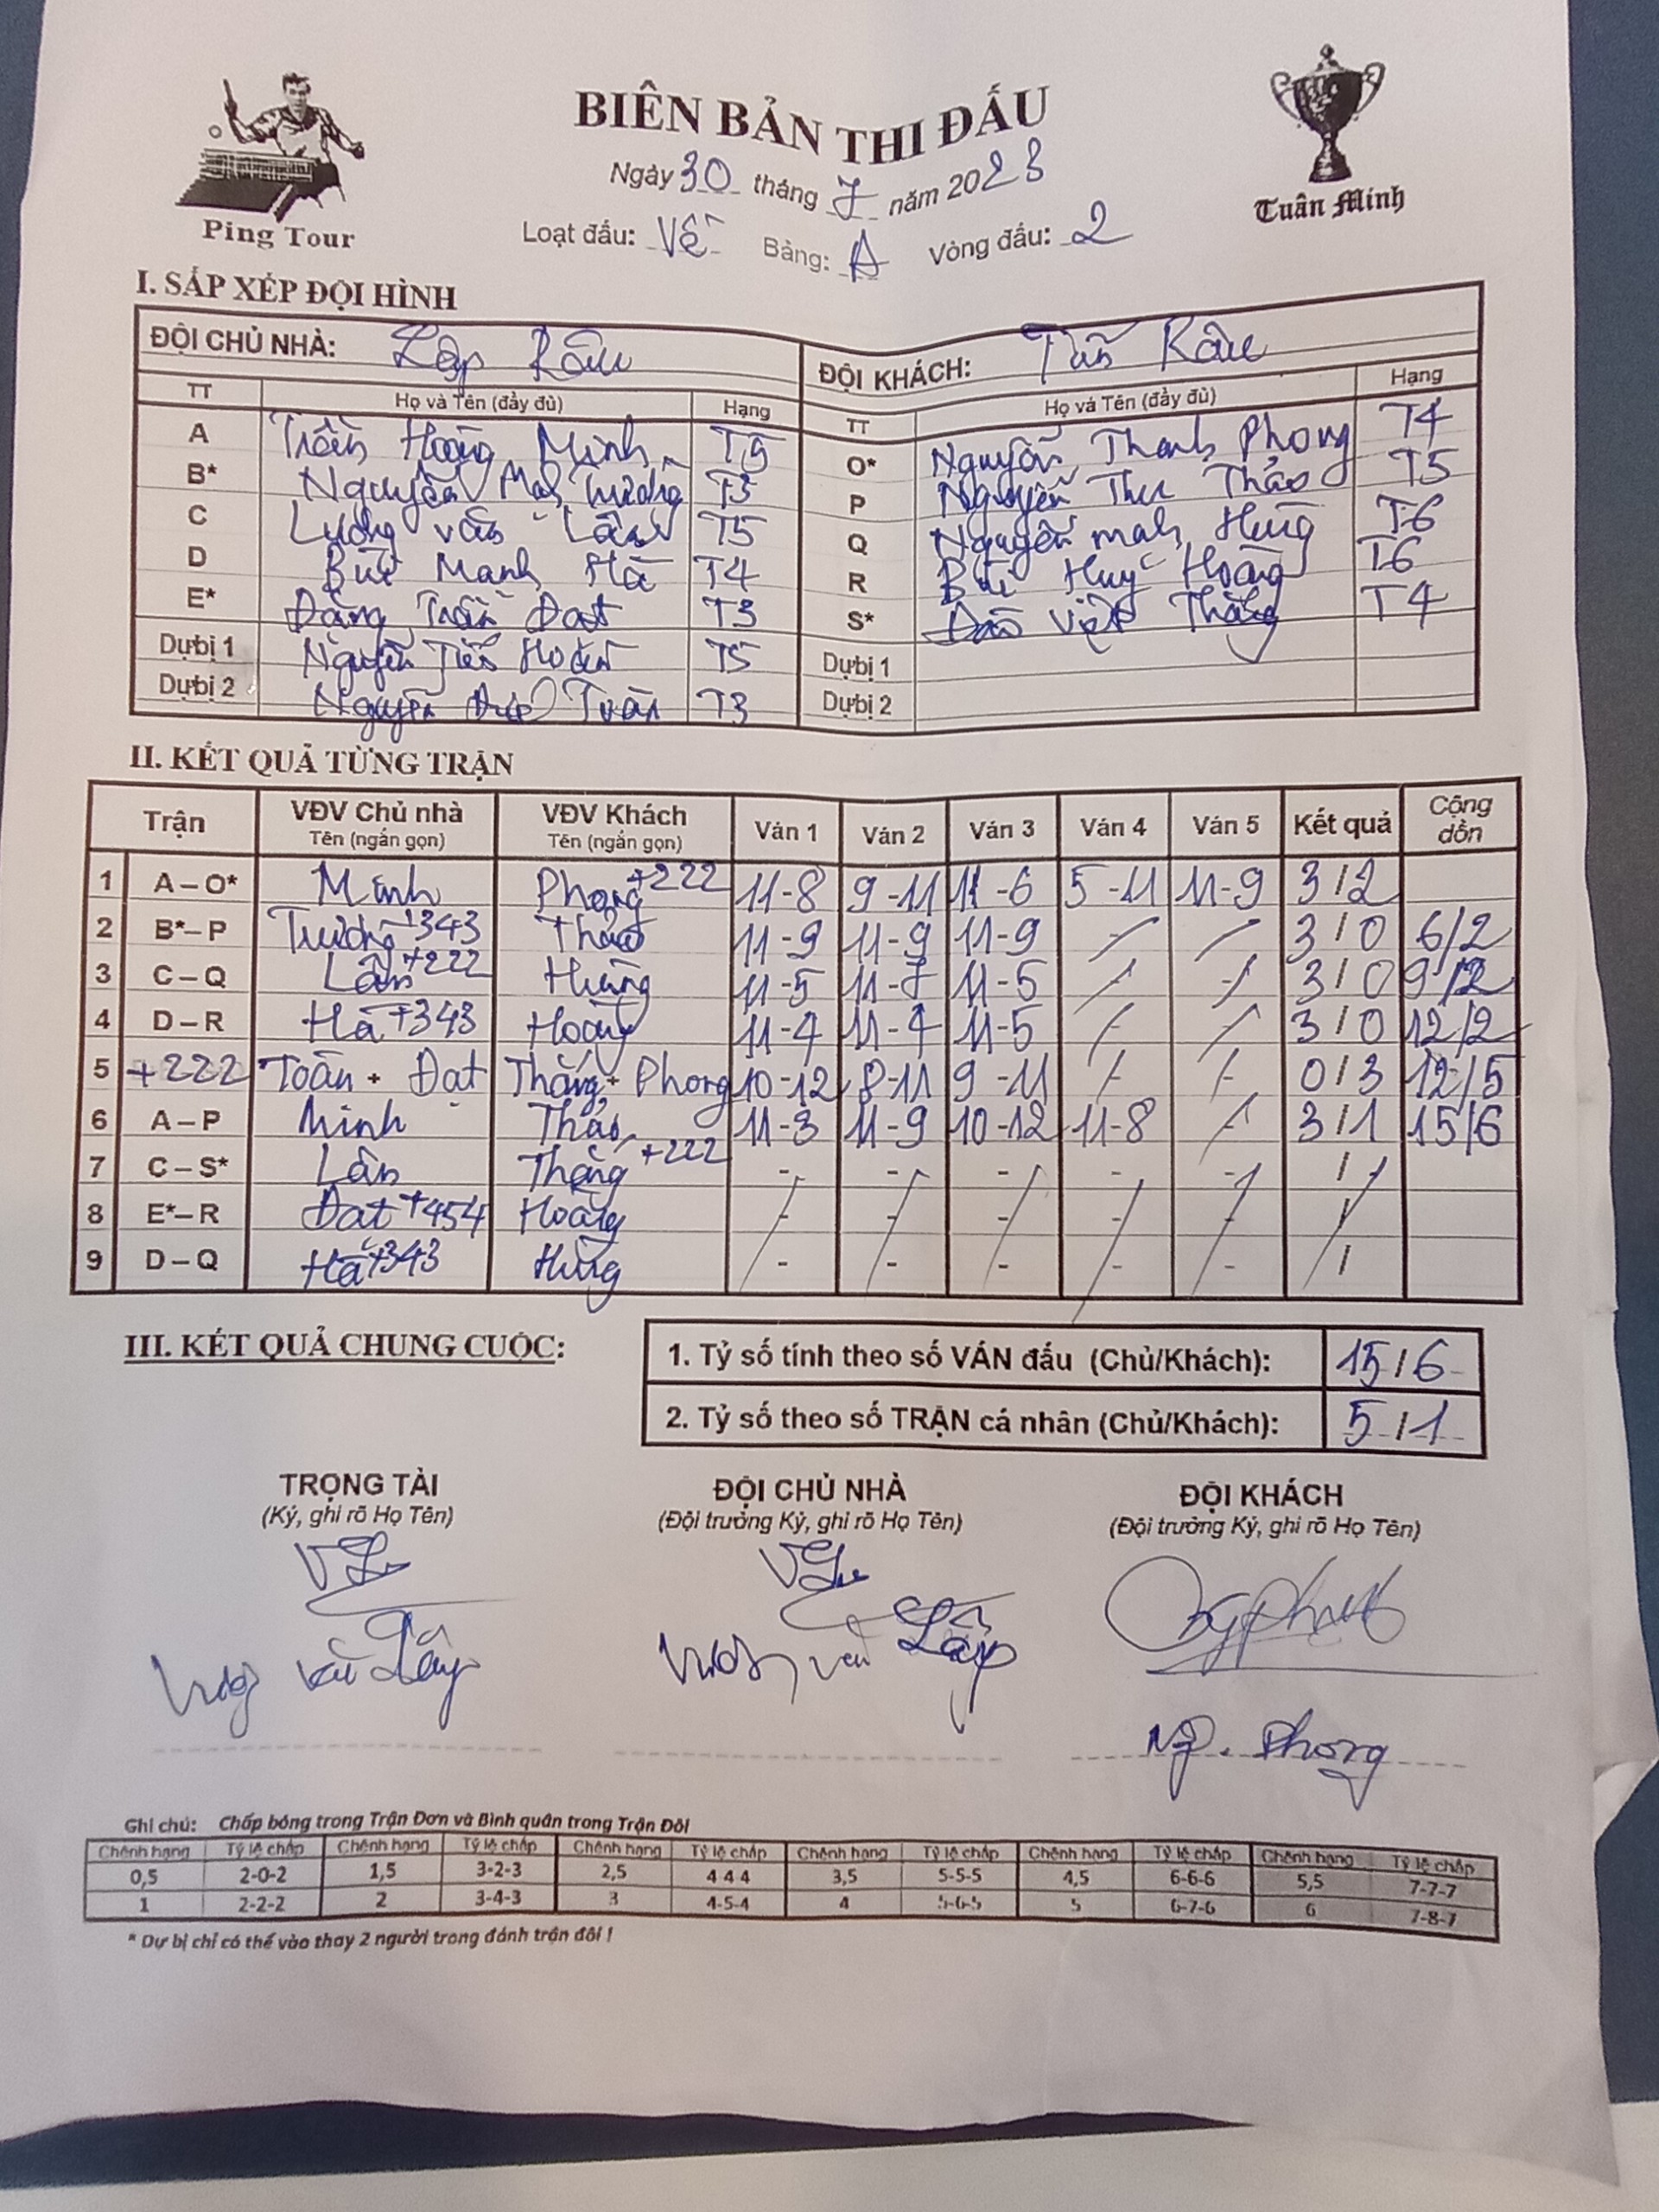 BIÊN BẢN THI ĐẤU
Ping Tour
Tuân Minh
Ngày 30 tháng 7 năm 2023
Loạt đấu: Về Bảng: A Vòng đấu: 2
I. SẮP XẾP ĐỘI HÌNH
ĐỘI CHỦ NHÀ: Lập Râu ĐỘI KHÁCH: Râu
TT Họ và Tên (đầy đủ) Hạng TT Họ và Tên (đầy đủ) Hạng
A Trần Hoàng Minh T5 O* Nguyễn Thanh Phong T4
B* Nguyễn Trường T3 P Nguyễn Thu Thảo T5
C Lương Văn Lân T5 Q Nguyễn mạnh Hùng T6
D Bùi Mạnh Hà T4 R Bùi Huy Hoàng T6
E* Đặng Trần Đạt T3 S* Đào Việt Thắng T4
Dự bị 1 Nguyễn Tiến T5 Dự bị 1
Dự bị 2 Nguyễn Đức T3 Dự bị 2
II. KẾT QUẢ TỪNG TRẬN
Trận VĐV Chủ nhà Tên (ngắn gọn) VĐV Khách Tên (ngắn gọn) Ván 1 Ván 2 Ván 3 Ván 4 Ván 5 Kết quả Cộng dồn
1 A – O* Minh Phong +222 11-8 9-11 11-6 5-11 11-9 3/2
2 B* – P Trường +343 Thảo 11-9 11-9 11-9 - - 3/0 6/2
3 C – Q Lân +222 Hùng 11-5 11-7 11-5 - - 3/0 9/2
4 D – R Hà +343 Hoàng 11-4 11-4 11-5 - - 3/0 12/2
5 +222 Toàn + Đạt Thắng + Phong 10-12 8-11 9-11 - - 0/3 12/5
6 A – P Minh Thảo 11-3 11-9 10-12 11-8 - 3/1 15/6
7 C – S* Lân Thắng +222 - - - - - /
8 E* – R Đạt +454 Hoàng - - - - - /
9 D – Q Hà +343 Hùng - - - - - /
III. KẾT QUẢ CHUNG CUỘC:
1. Tỷ số tính theo số VÁN đấu (Chủ/Khách): 15/6
2. Tỷ số theo số TRẬN cá nhân (Chủ/Khách): 5/1
TRỌNG TÀI ĐỘI CHỦ NHÀ ĐỘI KHÁCH
(Ký, ghi rõ Họ Tên) (Đội trưởng Ký, ghi rõ Họ Tên) (Đội trưởng Ký, ghi rõ Họ Tên)
Lập
Phong
Ghi chú: Chấp bóng trong Trận Đơn và Bình quân trong Trận Đôi
Chênh hạng Tỷ lệ chấp Chênh hạng Tỷ lệ chấp Chênh hạng Tỷ lệ chấp Chênh hạng Tỷ lệ chấp Chênh hạng Tỷ lệ chấp Chênh hạng Tỷ lệ chấp
0,5 2-0-2 1,5 3-2-3 2,5 4-4-4 3,5 5-5-5 4,5 6-6-6 5,5 7-7-7
1 2-2-2 2 3-4-3 3 4-5-4 4 5-6-5 5 6-7-6 6 7-8-7
* Dự bị chỉ có thể vào thay 2 người trong đánh trận đôi !